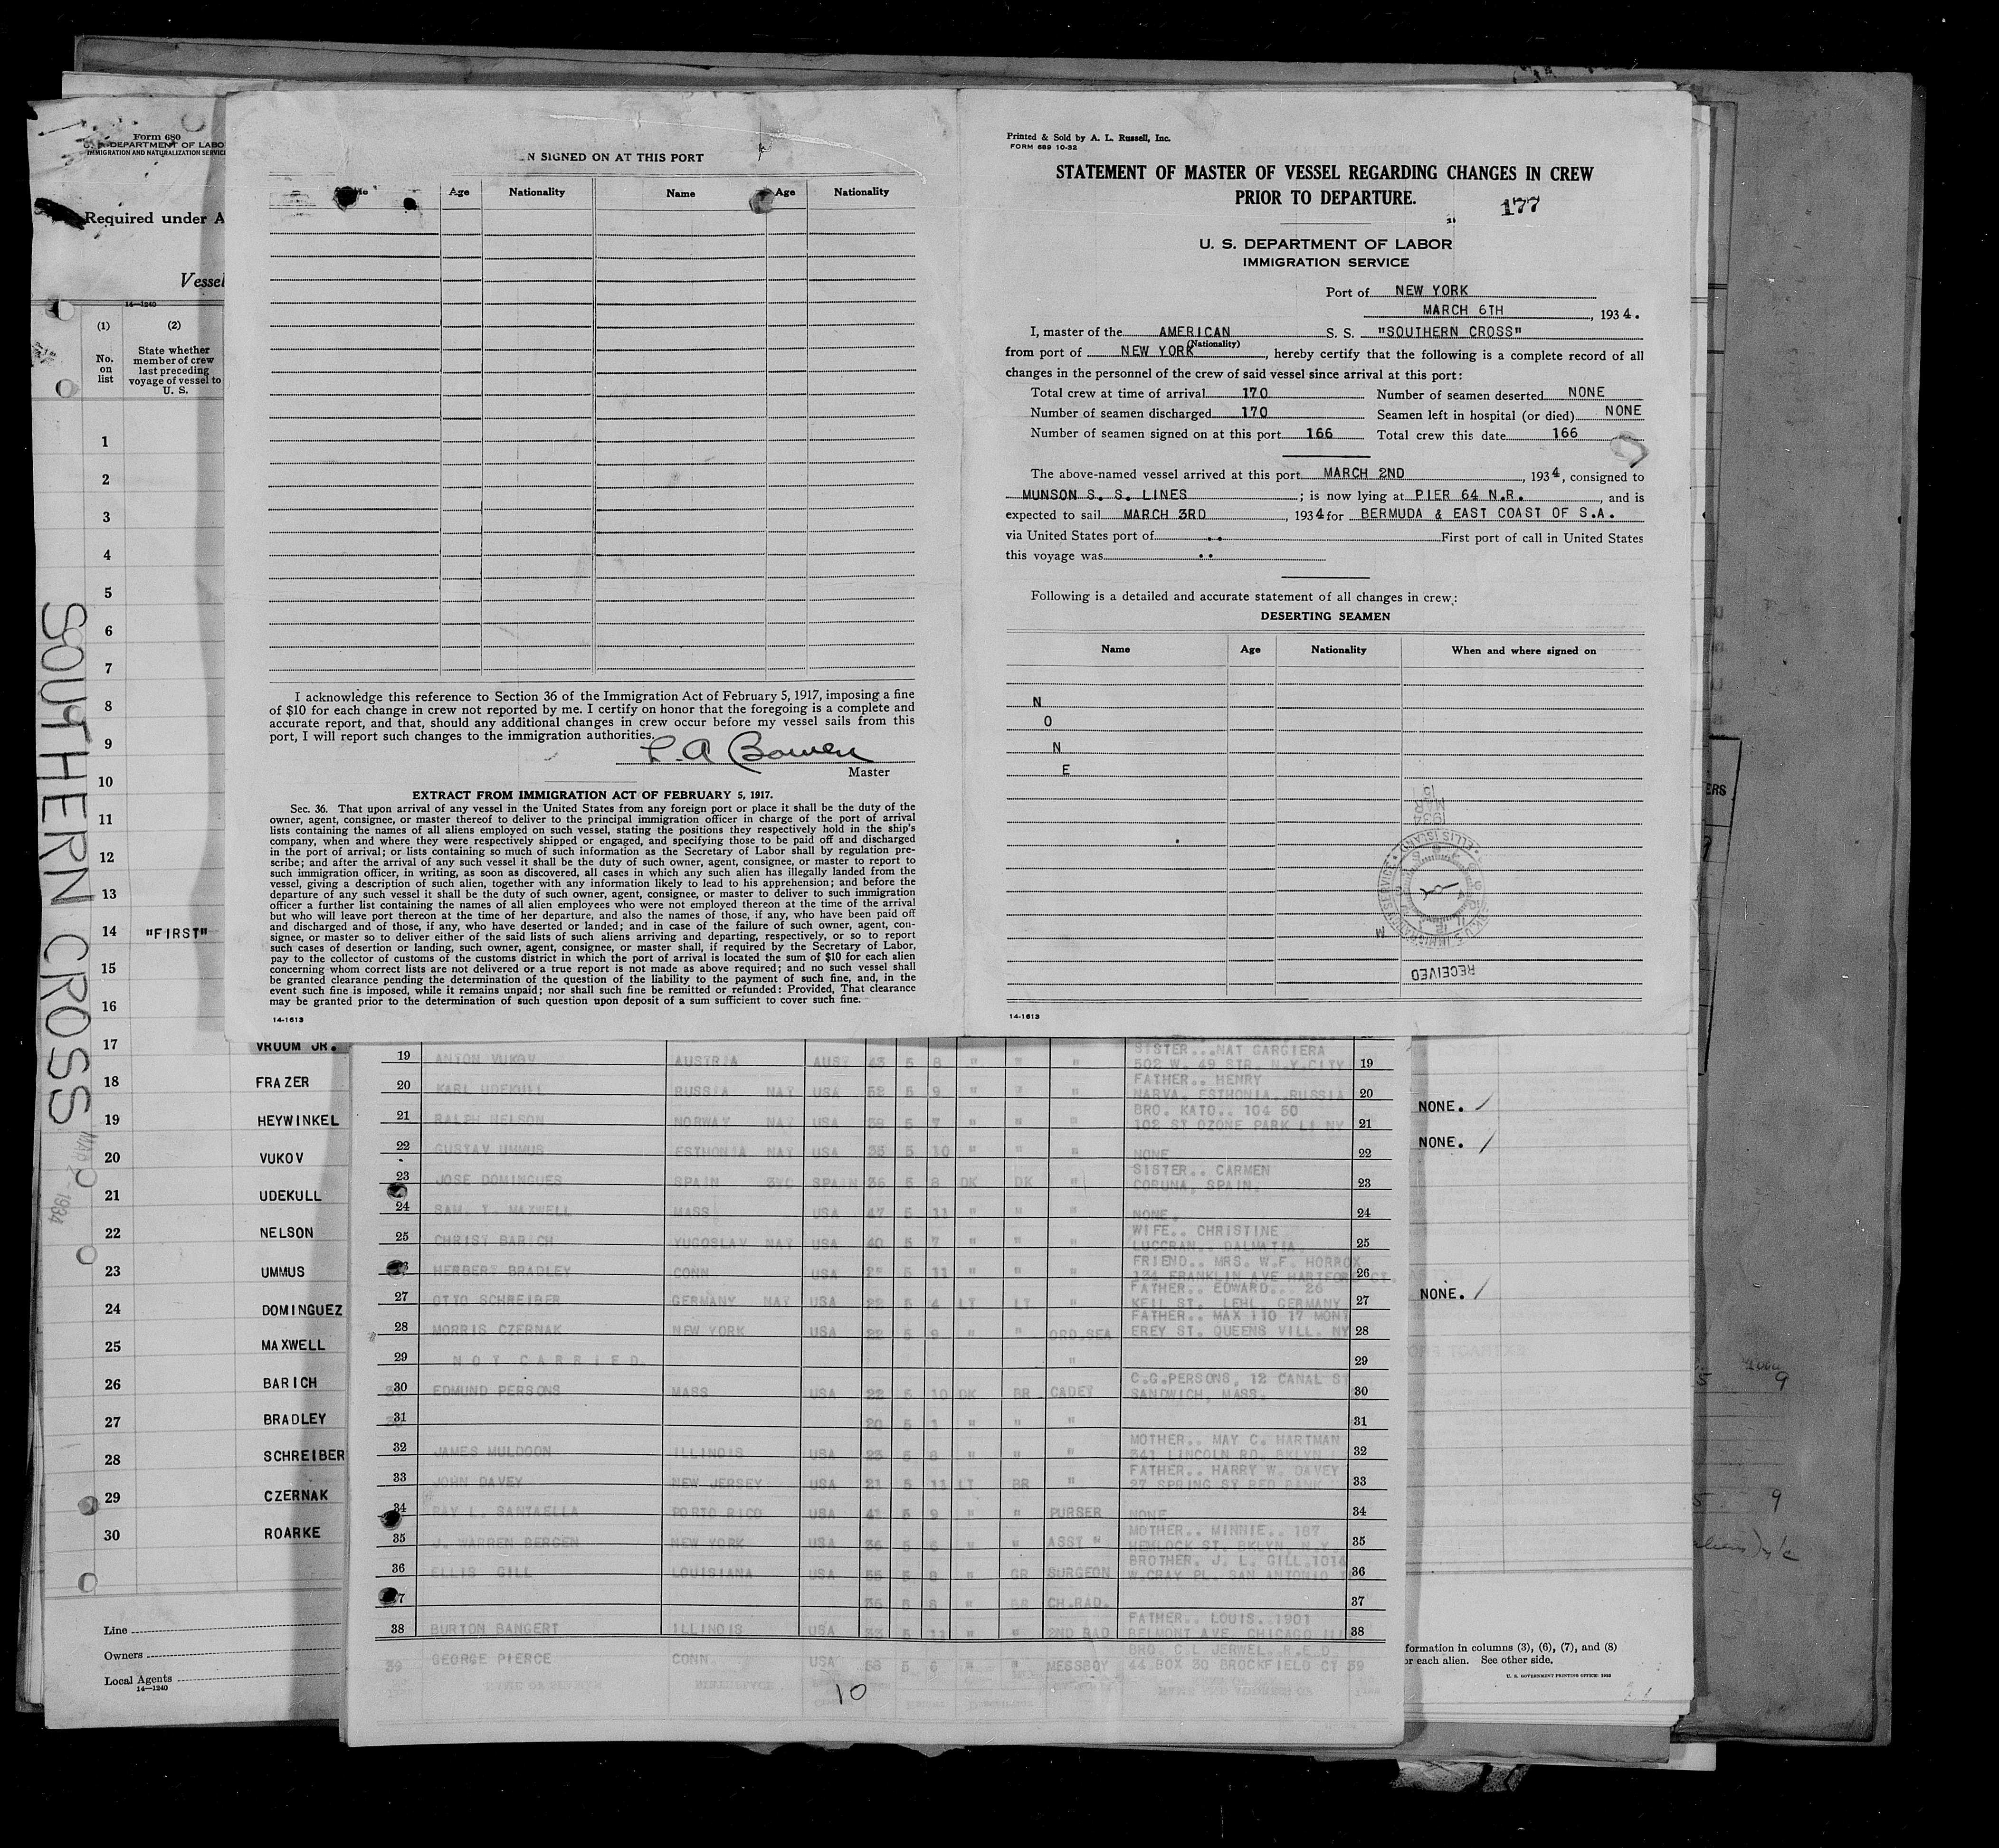 Form 680
U. S. DEPARTMENT OF LABO
IMMIGRATION AND NATURALIZATION SERVICE
Required under A
Vessel
14—1240
(1)
(2)
No.
on
list
State whether
member of crew
last preceding
voyage of vessel to
U. S.
1
2
3
4
5
6
7
8
9
10
11
12
13
14 "FIRST"
15
16
17 VROOM JR.
18 FRAZER
19 HEYWINKEL
20 VUKOV
21 UDEKULL
22 NELSON
23 UMMUS
24 DOMINGUEZ
25 MAXWELL
26 BARICH
27 BRADLEY
28 SCHREIBER
29 CZERNAK
30 ROARKE
Line
Owners
Local Agents
14—1240
SOUTHERN CROSS
MAR 2 - 1934
N SIGNED ON AT THIS PORT
Age Nationality Name Age Nationality
I acknowledge this reference to Section 36 of the Immigration Act of February 5, 1917, imposing a fine
of $10 for each change in crew not reported by me. I certify on honor that the foregoing is a complete and
accurate report, and that, should any additional changes in crew occur before my vessel sails from this
port, I will report such changes to the immigration authorities.
L. A Bowen
Master
EXTRACT FROM IMMIGRATION ACT OF FEBRUARY 5, 1917.
Sec. 36. That upon arrival of any vessel in the United States from any foreign port or place it shall be the duty of the
owner, agent, consignee, or master thereof to deliver to the principal immigration officer in charge of the port of arrival
lists containing the names of all aliens employed on such vessel, stating the positions they respectively hold in the ship's
company, when and where they were respectively shipped or engaged, and specifying those to be paid off and discharged
in the port of arrival; or lists containing so much of such information as the Secretary of Labor shall by regulation pre-
scribe; and after the arrival of any such vessel it shall be the duty of such owner, agent, consignee, or master to report to
such immigration officer, in writing, as soon as discovered, all cases in which any such alien has illegally landed from the
vessel, giving a description of such alien, together with any information likely to lead to his apprehension; and before the
departure of any such vessel it shall be the duty of such owner, agent, consignee, or master to deliver to such immigration
officer a further list containing the names of all alien employees who were not employed thereon at the time of the arrival
but who will leave port thereon at the time of her departure, and also the names of those, if any, who have been paid off
and discharged and of those, if any, who have deserted or landed; and in case of the failure of such owner, agent, con-
signee, or master so to deliver either of the said lists of such aliens arriving and departing, respectively, or so to report
such cases of desertion or landing, such owner, agent, consignee, or master shall, if required by the Secretary of Labor,
pay to the collector of customs of the customs district in which the port of arrival is located the sum of $10 for each alien
concerning whom correct lists are not delivered or a true report is not made as above required; and no such vessel shall
be granted clearance pending the determination of the question of the liability to the payment of such fine, and, in the
event such fine is imposed, while it remains unpaid; nor shall such fine be remitted or refunded: Provided, That clearance
may be granted prior to the determination of such question upon deposit of a sum sufficient to cover such fine.
14-1613
Printed & Sold by A. L. Russell, Inc.
FORM 689 10-32
STATEMENT OF MASTER OF VESSEL REGARDING CHANGES IN CREW
PRIOR TO DEPARTURE.
177
U. S. DEPARTMENT OF LABOR
IMMIGRATION SERVICE
Port of NEW YORK
MARCH 6TH, 1934.
I, master of the AMERICAN S. S. "SOUTHERN CROSS"
(Nationality)
from port of NEW YORK, hereby certify that the following is a complete record of all
changes in the personnel of the crew of said vessel since arrival at this port:
Total crew at time of arrival 170 Number of seamen deserted NONE
Number of seamen discharged 170 Seamen left in hospital (or died) NONE
Number of seamen signed on at this port 166 Total crew this date 166
The above-named vessel arrived at this port MARCH 2ND, 1934, consigned to
MUNSON S. S. LINES; is now lying at PIER 64 N.R., and is
expected to sail MARCH 3RD, 1934 for BERMUDA & EAST COAST OF S.A.
via United States port of .. First port of call in United States
this voyage was ..
Following is a detailed and accurate statement of all changes in crew:
DESERTING SEAMEN
Name Age Nationality When and where signed on
N
O
N
E
1934
MAR
15
U.S. IMMIGRATION SERVICE ELLIS ISLAND
RECEIVED
14-1613
SISTER...NAT GARGIERA
19 ANTON VUKOV AUSTRIA AUST 43 5 8 " " " 502 W. 49 STR. N.Y.CITY 19
FATHER.. HENRY
20 KARL UDEKULL RUSSIA NAT USA 52 5 9 " " " NARVA. ESTHONIA..RUSSIA 20
BRO. KATO.. 104 50
21 RALPH NELSON NORWAY NAT USA 38 5 7 " " " 102 ST OZONE PARK LI NY 21
22 GUSTAV UMMUS ESTHONIA NAT USA 35 5 10 " " " NONE 22
SISTER.. CARMEN
23 JOSE DOMINGUES SPAIN SPAIN 36 5 8 DK DK " CORUNA, SPAIN. 23
24 SAM. T. MAXWELL MASS USA 47 5 11 " " " NONE. 24
WIFE.. CHRISTINE
25 CHRIST BARICH YUGOSLAV NAT USA 40 5 7 " " " DALMATIA. 25
FRIEND.. MRS. W.F. HORROX
HERBERT BRADLEY CONN USA 5 11 " " " 134 FRANKLIN AVE HARTFORD CT. 26
FATHER.. EDWARD... 26
27 OTTO SCHREIBER GERMANY NAT USA 22 5 4 LT LT " KEIL ST. LEHL, GERMANY 27
FATHER.. MAX 110 17 MONT
28 MORRIS CZERNAK NEW YORK USA 22 5 9 " " ORD.SEA EREY ST. QUEENS VILL. NY 28
29 NOT CARRIED. " 29
C.G.PERSONS, 12 CANAL ST
30 EDMUND PERSONS MASS USA 22 5 10 DK BR CADET SANDWICH, MASS. 30
31 20 5 1 " " " 31
MOTHER.. MAY C. HARTMAN
32 JAMES MULDOON ILLINOIS USA 23 5 8 " " " 341 LINCOLN RD. BKLYN 32
FATHER.. HARRY W. DAVEY
33 JOHN DAVEY NEW JERSEY USA 21 5 11 LT BR " 27 SPRING ST RED BANK 33
34 RAY L. SANTAELLA PORTO RICO USA 41 5 9 " " PURSER NONE 34
MOTHER.. MINNIE.. 187
35 J. WARREN BERGEN NEW YORK USA 36 5 6 " " ASST " HEMLOCK ST. BKLYN, N.Y. 35
BROTHER. J. L. GILL.1014
36 ELLIS GILL LOUISIANA USA 55 5 8 " GR SURGEON W.CRAY PL. SAN ANTONIO 36
37 36 5 8 " BR CH.RAD. 37
FATHER.. LOUIS. 1901
38 BURTON BANGERT ILLINOIS USA 33 5 11 " " 2ND RAD BELMONT AVE. CHICAGO ILL 38
BRO. C.L JERWEL. R.F.D
39 GEORGE PIERCE CONN. USA 58 5 6 " " MESSBOY 44 BOX 30 BROCKFIELD CT 39
10
NONE. /
NONE. /
NONE. /
formation in columns (3), (6), (7), and (8)
or each alien. See other side.
U. S. GOVERNMENT PRINTING OFFICE: 1933
ERS
5 9
5 9